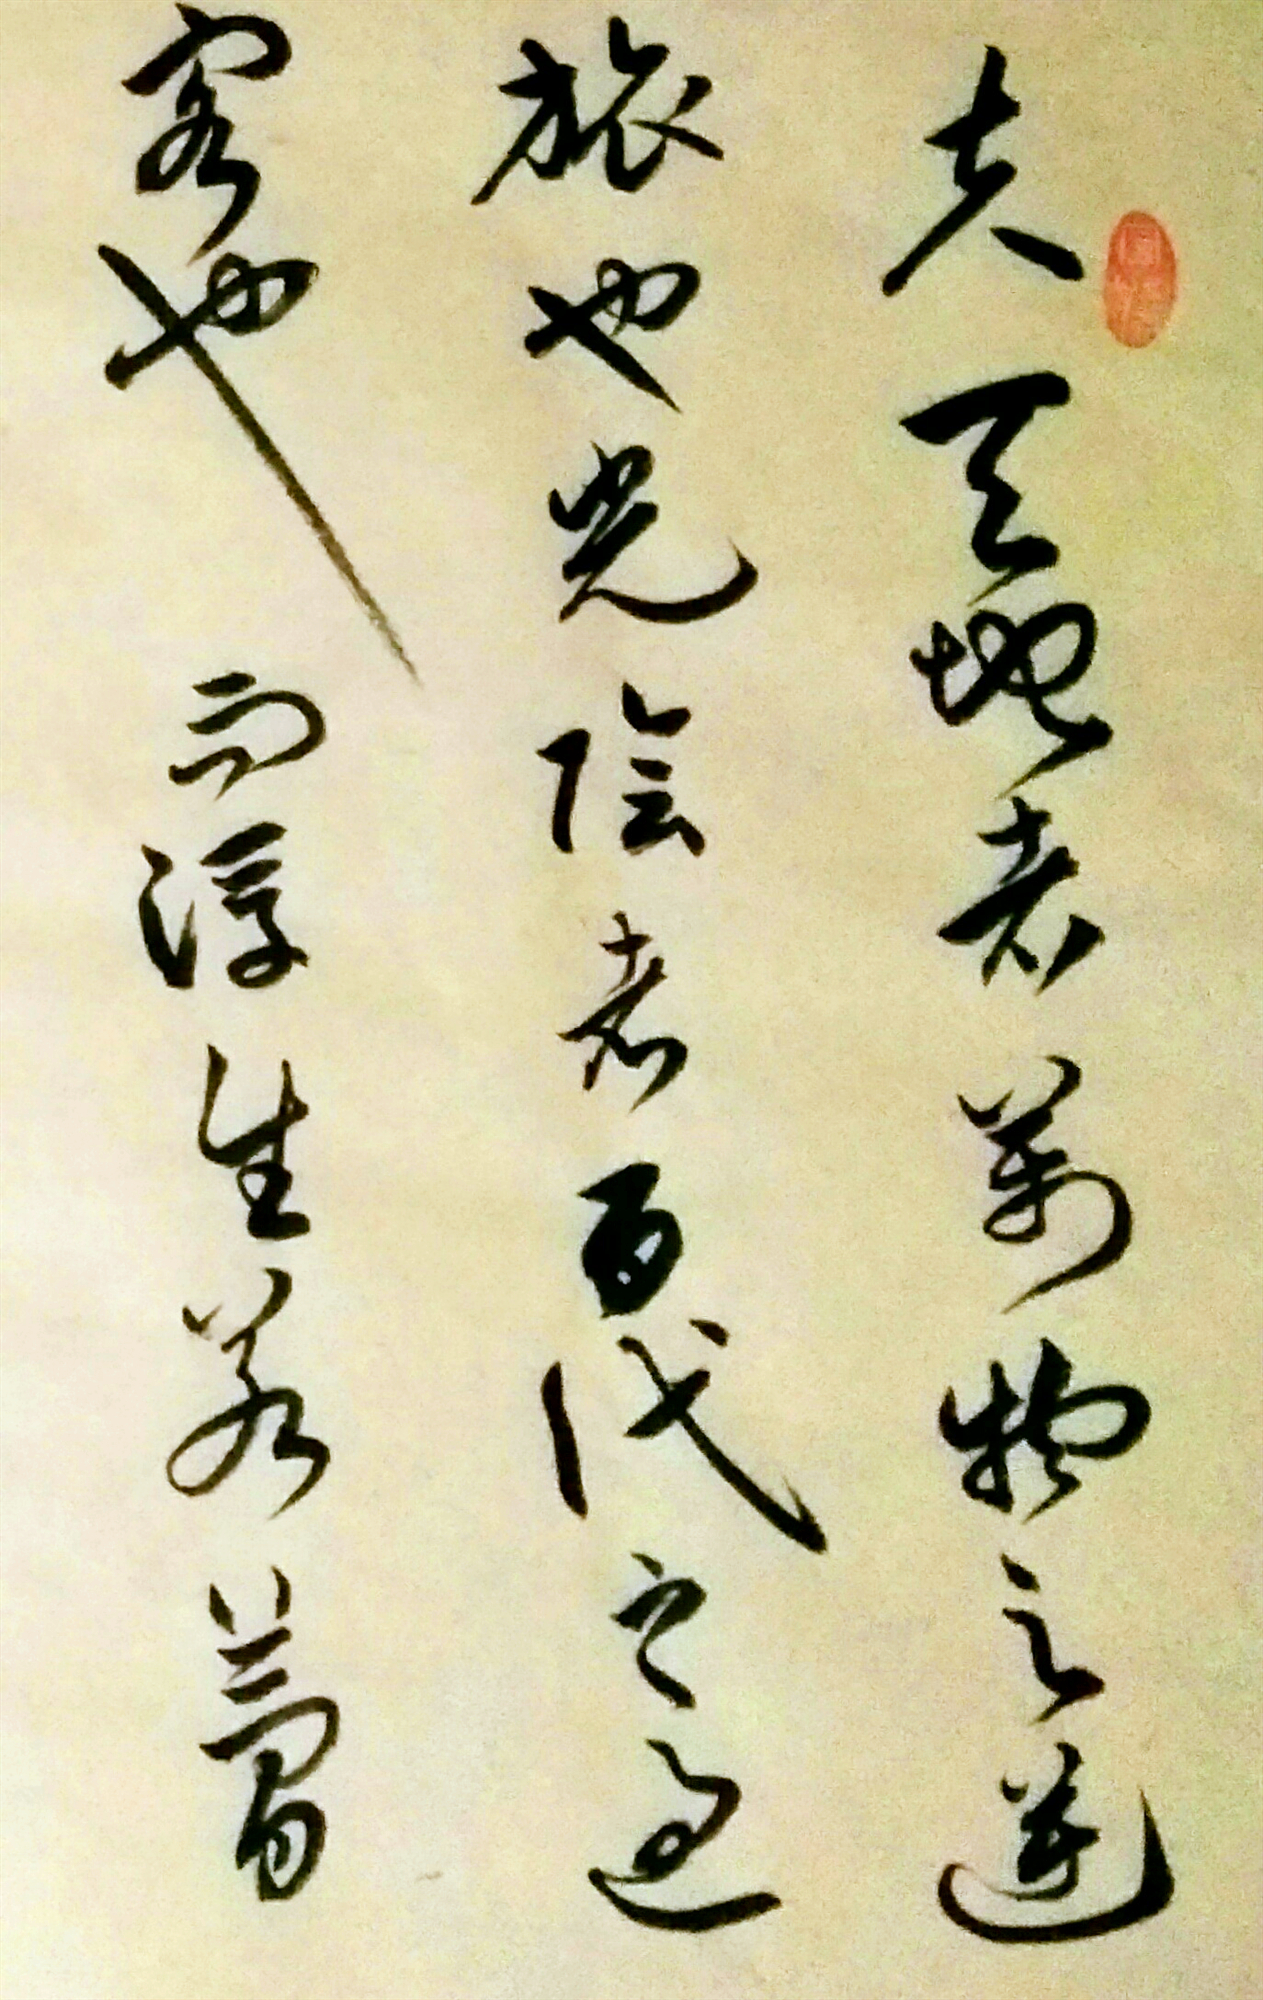 夫天地者萬物之逆
旅也光陰者百代之過
客也而浮生若夢